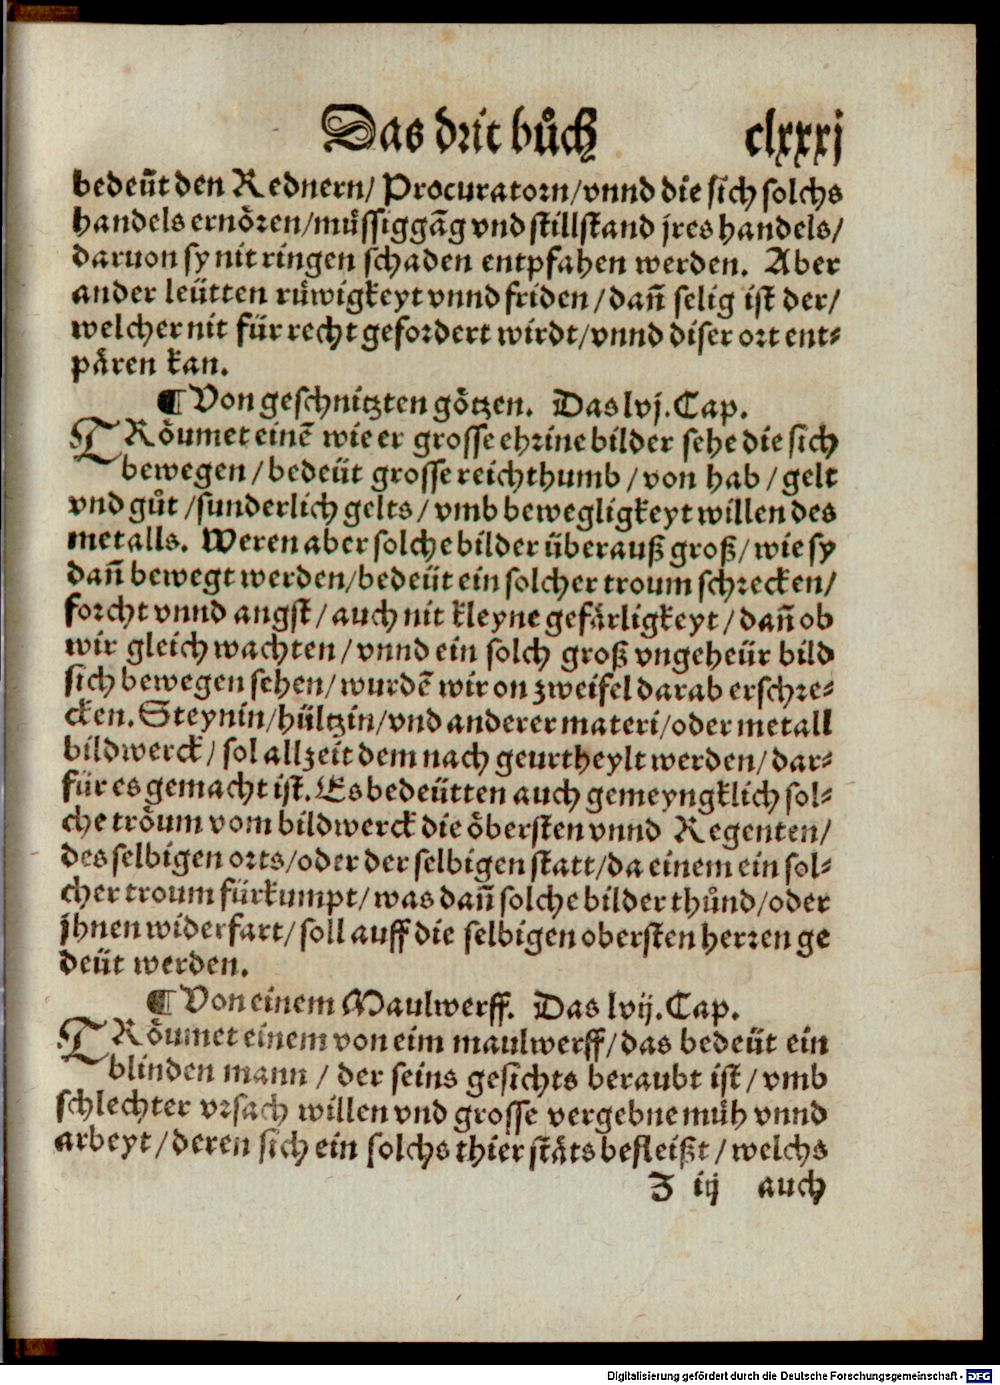 Das drit bůch clxxxj
bedeüt den Rednern/ Procuratorn/vnnd die sich solchs
handels ernören/müssiggãg vnd stillstand jres handels/
daruon sy nit ringen schaden entpfahen werden. Aber
ander leütten rüwigkeyt vnnd friden/dañ selig ist der/
welcher nit für recht gefordert wirdt/vnnd diser ort ent⸗
pären kan.
¶ Von geschnitzten götzen. Das lvj. Cap.
TRöumet einẽ wie er grosse ehrine bilder sehe die sich
bewegen/bedeüt grosse reichthumb/von hab/gelt
vnd gůt/sunderlich gelts/vmb bewegligkeyt willen des
metalls. Weren aber solche bilder überauß groß/wie sy
dañ bewegt werden/bedeüt ein solcher troum schrecken/
forcht vnnd angst/auch nit kleyne gefärligkeyt/dañ ob
wir gleich wachten/vnnd ein solch groß vngeheür bild
sich bewegen sehen/wurdẽ wir on zweifel darab erschre⸗
cken. Steynin/hültzin/vnd anderer materi/oder metall
bildwerck/sol allzeit dem nach geurtheylt werden/dar⸗
für es gemacht ist. Es bedeütten auch gemeyngklich sol⸗
che tröum vom bildwerck die öbersten vnnd Regenten/
des selbigen orts/oder der selbigen statt/da einem ein sol⸗
cher troum fürkumpt/was dañ solche bilder thůnd/oder
jhnen widerfart/soll auff die selbigen obersten herren ge
deüt werden.
¶ Von einem Maulwerff. Das lvij. Cap.
TRöumet einem von eim maulwerff/das bedeüt ein
blinden mann/der seins gesichts beraubt ist/vmb
schlechter vrsach willen vnd grosse vergebne müh vnnd
arbeyt/deren sich ein solchs thier stäts befleißt/welchs
Z iij auch
Digitalisierung gefördert durch die Deutsche Forschungsgemeinschaft - DFG